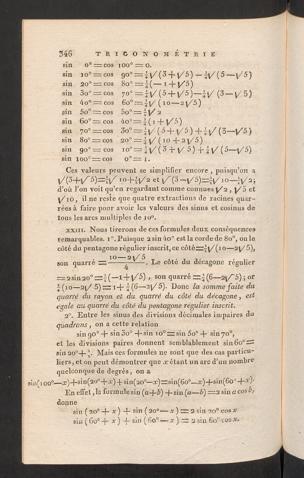 346 TRIGONOMÉTRIE
sin 0° = cos 100° = 0.
sin 10° = cos 90° = ¼√(3+√5) − ¼√(5−√5)
sin 20° = cos 80° = ¼(−1+√5)
sin 30° = cos 70° = ¼√(5+√5) − ¼√(3−√5)
sin 40° = cos 60° = ¼√(10−2√5)
sin 50° = cos 50° = ½√2
sin 60° = cos 40° = ¼(1+√5)
sin 70° = cos 30° = ¼√(5+√5) + ¼√(3−√5)
sin 80° = cos 20° = ¼√(10+2√5)
sin 90° = cos 10° = ¼√(3+√5) + ¼√(5−√5)
sin 100° = cos 0° = 1.
Ces valeurs peuvent se simplifier encore, puisqu'on a
√(3+√5) = ½√10 + ½√2 et √(3−√5) = ½√10 − ½√2;
d'où l'on voit qu'en regardant comme connues √2, √5 et
√10, il ne reste que quatre extractions de racines quar-
rées à faire pour avoir les valeurs des sinus et cosinus de
tous les arcs multiples de 10°.
XXIII. Nous tirerons de ces formules deux conséquences
remarquables. 1°. Puisque 2 sin 20° est la corde de 80°, ou le
côté du pentagone régulier inscrit, ce côté = ½√(10−2√5),
son quarré = (10−2√5)/4. Le côté du décagone régulier
= 2 sin 20° = ½(−1+√5), son quarré = ¼(6−2√5); or
¼(10−2√5) = 1 + ¼(6−2√5). Donc la somme faite du
quarré du rayon et du quarré du côté du décagone, est
egale au quarré du côté du pentagone régulier inscrit.
2°. Entre les sinus des divisions décimales impaires du
quadrans, on a cette relation
sin 90° + sin 30° + sin 10° = sin 50° + sin 70°,
et les divisions paires donnent semblablement sin 60° =
sin 20° + ½. Mais ces formules ne sont que des cas particu-
liers, et on peut démontrer que x étant un arc d'un nombre
quelconque de degrés, on a
sin(100°−x) + sin(20°+x) + sin(20°−x) = sin(60°−x) + sin(60°+x).
En effet, la formule sin(a+b) + sin(a−b) = 2 sin a cos b,
donne
sin (20° + x) + sin (20° − x) = 2 sin 20° cos x
sin (60° + x) + sin (60° − x) = 2 sin 60° cos x.